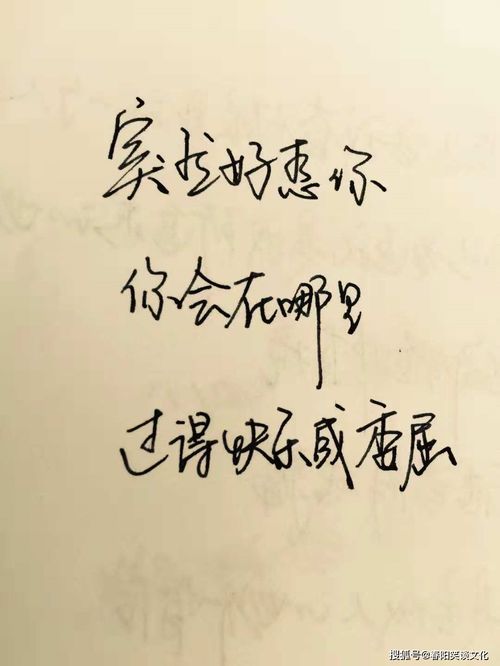 突然好想你
你会在哪里
过得快乐或委屈
搜狐号@春阳笑谈文化